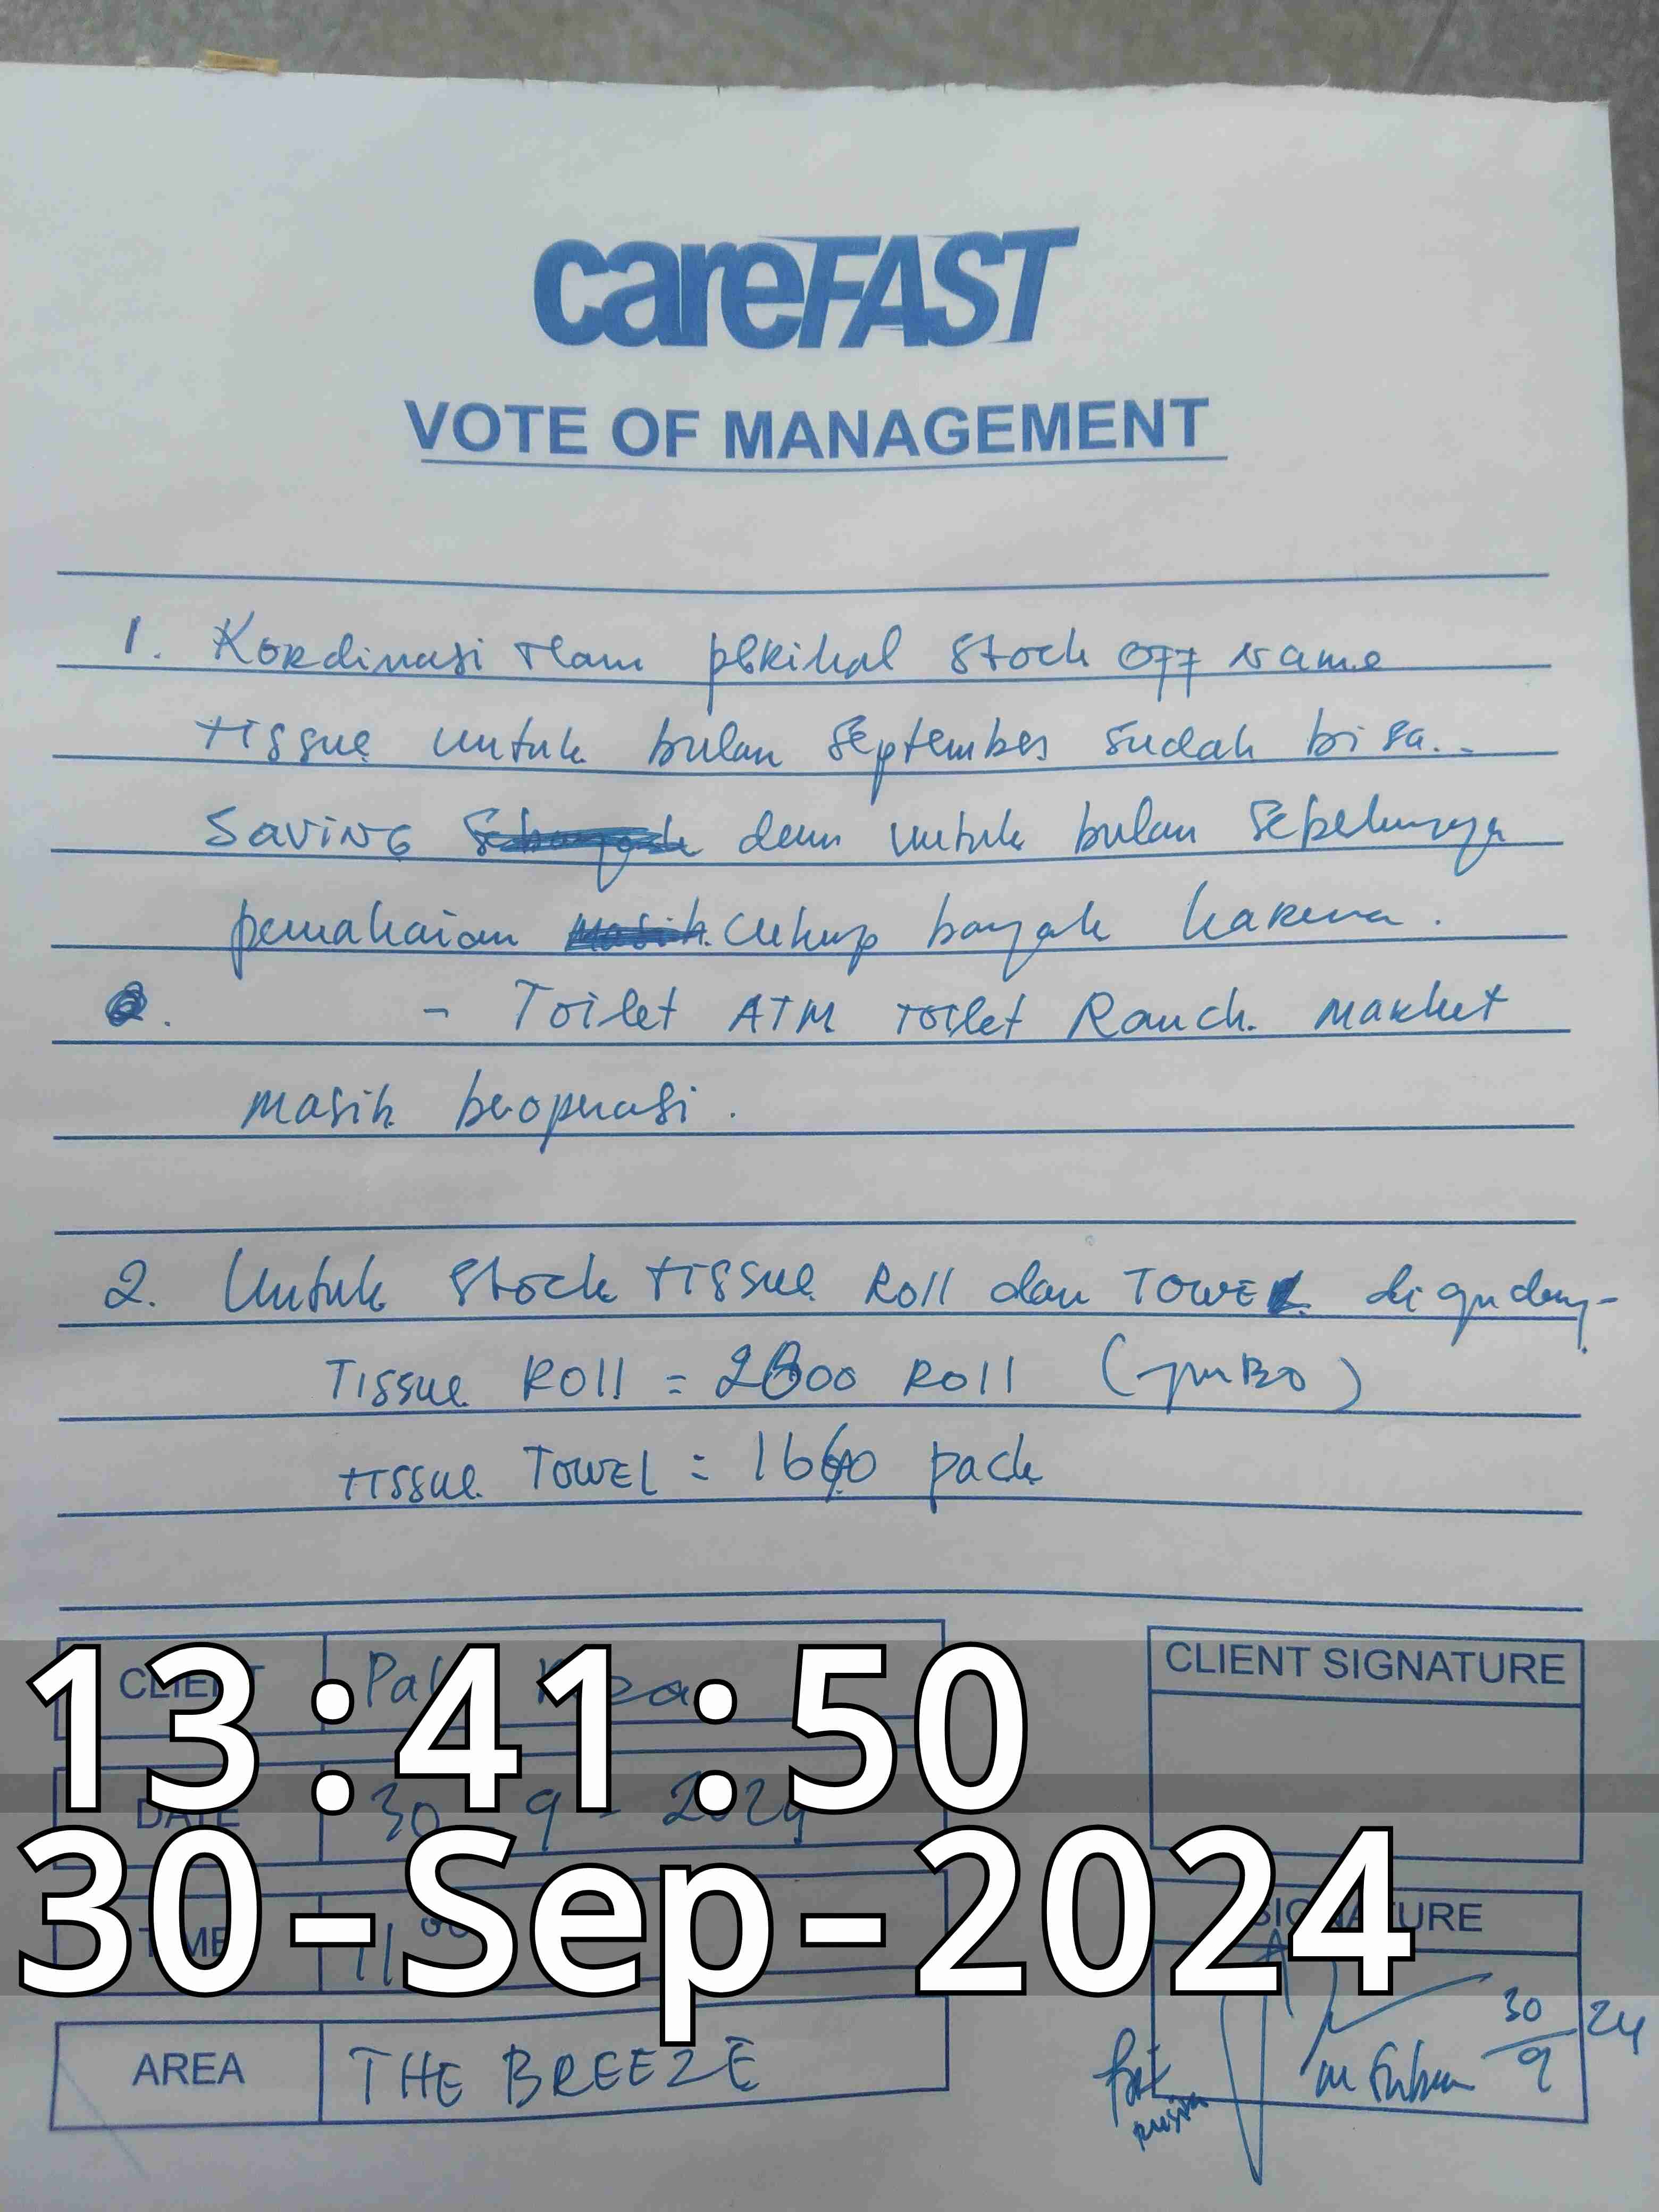 careFAST
VOTE OF MANAGEMENT
1. Kordinasi Team perihal Stock OFF Name
Tissue untuk bulan September sudah bisa..
Saving dan untuk bulan sebelumnya
pemakaian cukup banyak karena.
- Toilet ATM Toilet Ranch. Market
masih beroperasi.
2. Untuk Stock Tissue Roll dan TOWEL digudang-
Tissue Roll = 2800 Roll (JUMBO)
Tissue TOWEL = 1640 pack
CLIENT Pak
CLIENT SIGNATURE
13:41:50
DATE 30 - 9 - 2024
30-Sep-2024
TIME 11 00
SIGNATURE
AREA THE BREEZE
30/9 24